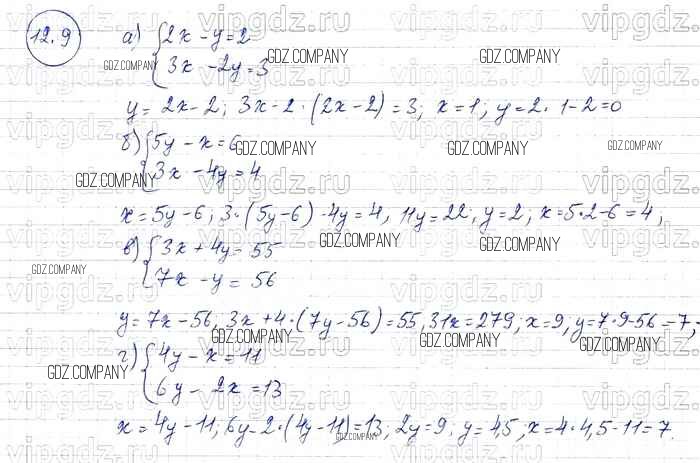 12.9
а) 2x - y = 2
3x - 2y = 3
y = 2x - 2; 3x - 2 · (2x - 2) = 3; x = 1; y = 2 · 1 - 2 = 0
б) 5y - x = 6
3x - 4y = 4
x = 5y - 6; 3 · (5y - 6) - 4y = 4, 11y = 22, y = 2; x = 5 · 2 - 6 = 4;
в) 3x + 4y = 55
7x - y = 56
y = 7x - 56, 3x + 4 · (7y - 56) = 55, 31x = 279; x = 9, y = 7 · 9 - 56 = 7,
г) 4y - x = 11
6y - 2x = 13
x = 4y - 11; 6y - 2 · (4y - 11) = 13, 2y = 9; y = 4,5; x = 4 · 4,5 - 11 = 7.
vipgdz.ru
GDZ.COMPANY